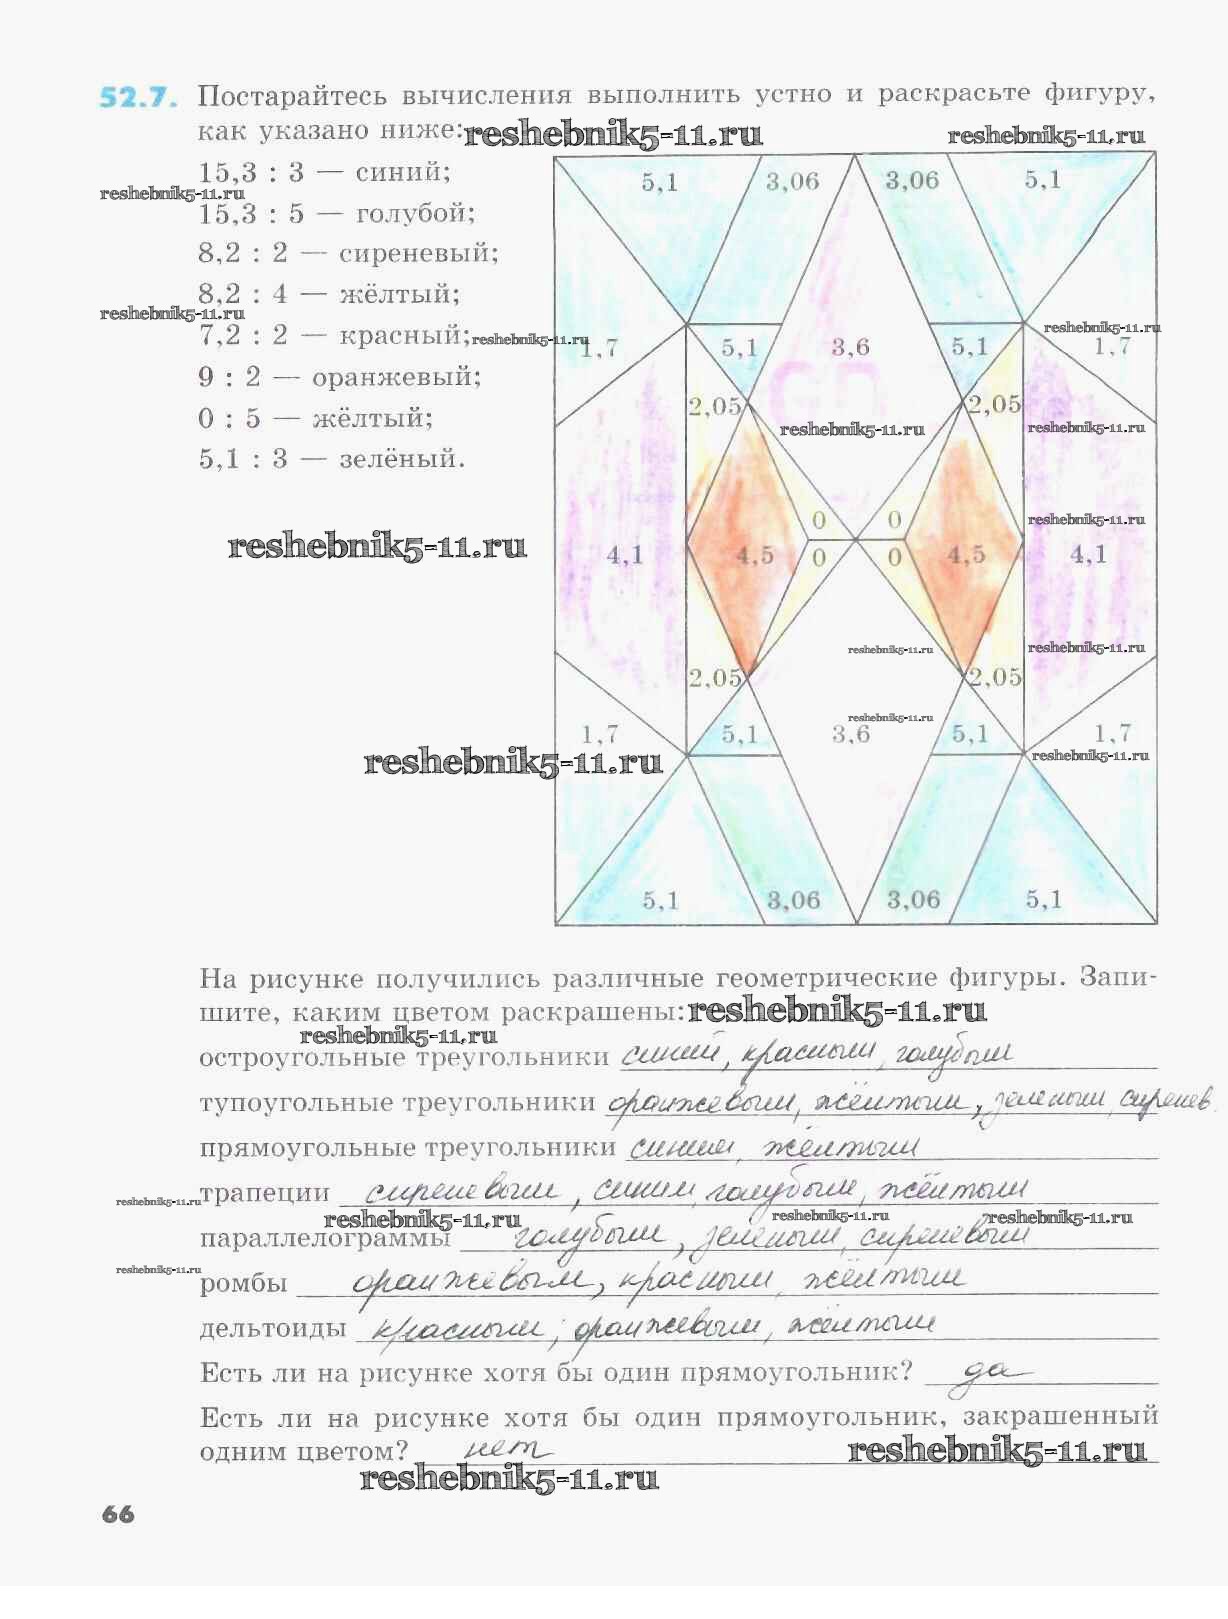 52.7. Постарайтесь вычисления выполнить устно и раскрасьте фигуру,
как указано ниже: reshebnik5-11.ru reshebnik5-11.ru
15,3 : 3 — синий;
reshebnik5-11.ru
15,3 : 5 — голубой;
8,2 : 2 — сиреневый;
8,2 : 4 — жёлтый;
reshebnik5-11.ru
7,2 : 2 — красный; reshebnik5-11.ru
9 : 2 — оранжевый;
0 : 5 — жёлтый;
5,1 : 3 — зелёный.
reshebnik5-11.ru
5,1 3,06 3,06 5,1
reshebnik5-11.ru
1,7 5,1 3,6 5,1 1,7
2,05 2,05
reshebnik5-11.ru reshebnik5-11.ru
0 0 reshebnik5-11.ru
4,1 4,5 0 0 4,5 4,1
reshebnik5-11.ru reshebnik5-11.ru
2,05 2,05
reshebnik5-11.ru
1,7 5,1 3,6 5,1 1,7
reshebnik5-11.ru reshebnik5-11.ru
5,1 3,06 3,06 5,1
На рисунке получились различные геометрические фигуры. Запи-
шите, каким цветом раскрашены: reshebnik5-11.ru
reshebnik5-11.ru
остроугольные треугольники синий, красным, голубым
тупоугольные треугольники оранжевым, жёлтым, зелёным, сиренев.
прямоугольные треугольники синим, жёлтым
reshebnik5-11.ru трапеции сиреневым, синим, голубым, жёлтым
reshebnik5-11.ru reshebnik5-11.ru reshebnik5-11.ru
параллелограммы голубым, зелёным, сиреневым
reshebnik5-11.ru
ромбы оранжевым, красным, жёлтым
дельтоиды красным, оранжевым, жёлтым
Есть ли на рисунке хотя бы один прямоугольник? да
Есть ли на рисунке хотя бы один прямоугольник, закрашенный
одним цветом? нет reshebnik5-11.ru
reshebnik5-11.ru
66